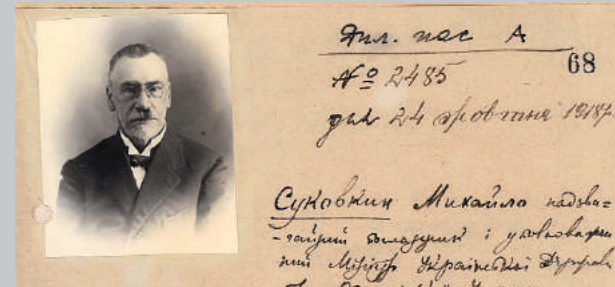 Дипл. пас А
68
№ 2485
дня 24 жовтня 1918 р.
Суковкин Михайло надзви=
-чайний посланник і уповноваже
ний Міністр Української Держави